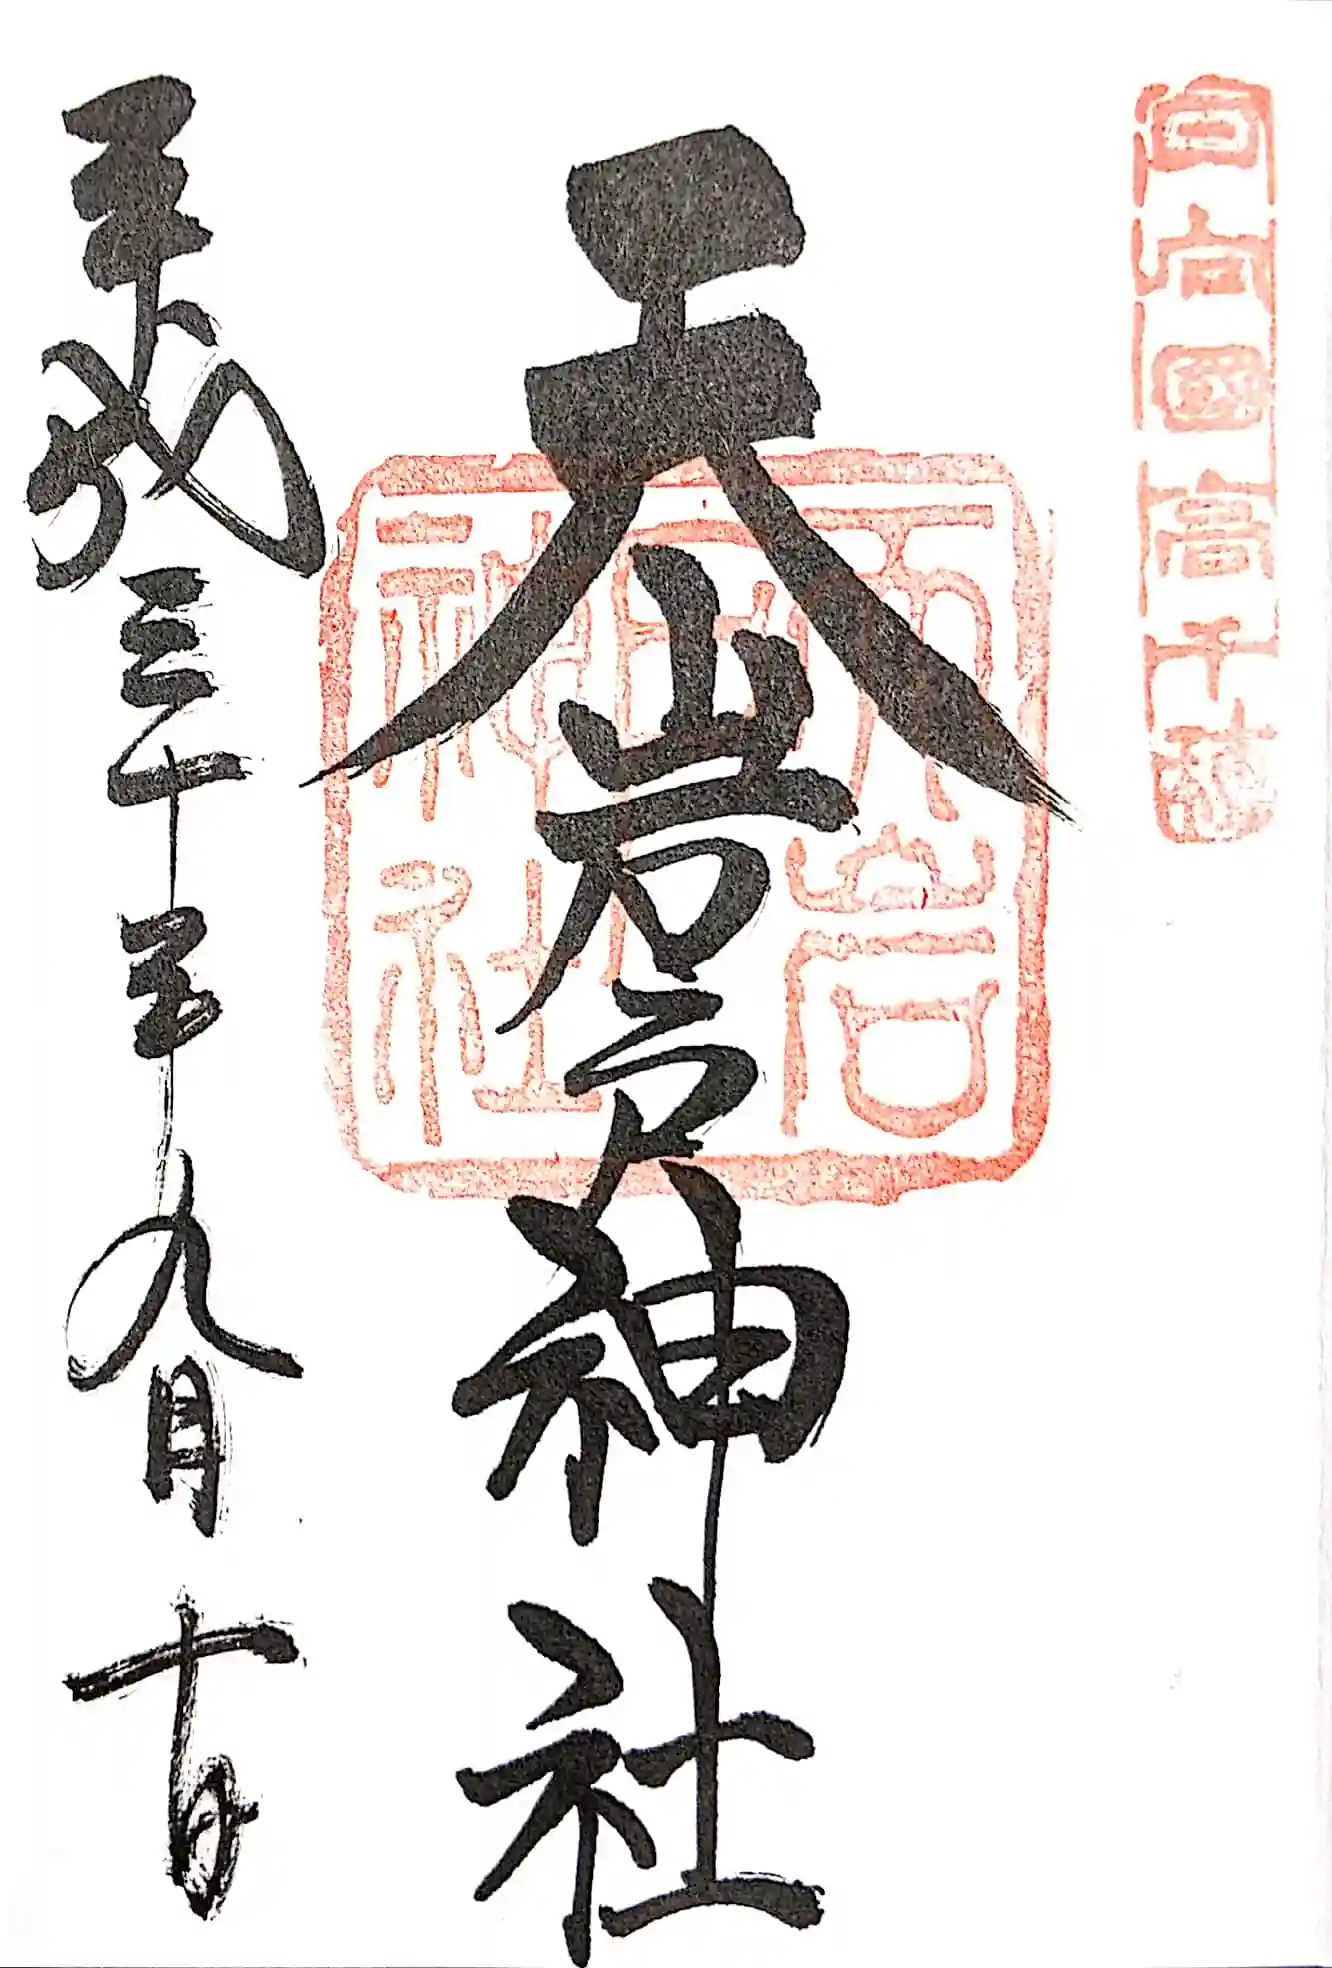 日向國高千穂
天岩戸神社
天岩戸神社
平成三十年九月十日